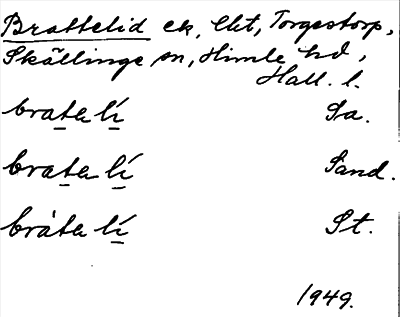 Brattelid ek, Ekt, Torgestorp,
Skällinge sn, Himle hd,
Hall. l.
brata lí Sa.
brata lí Sand.
bráta lí St.
1949.